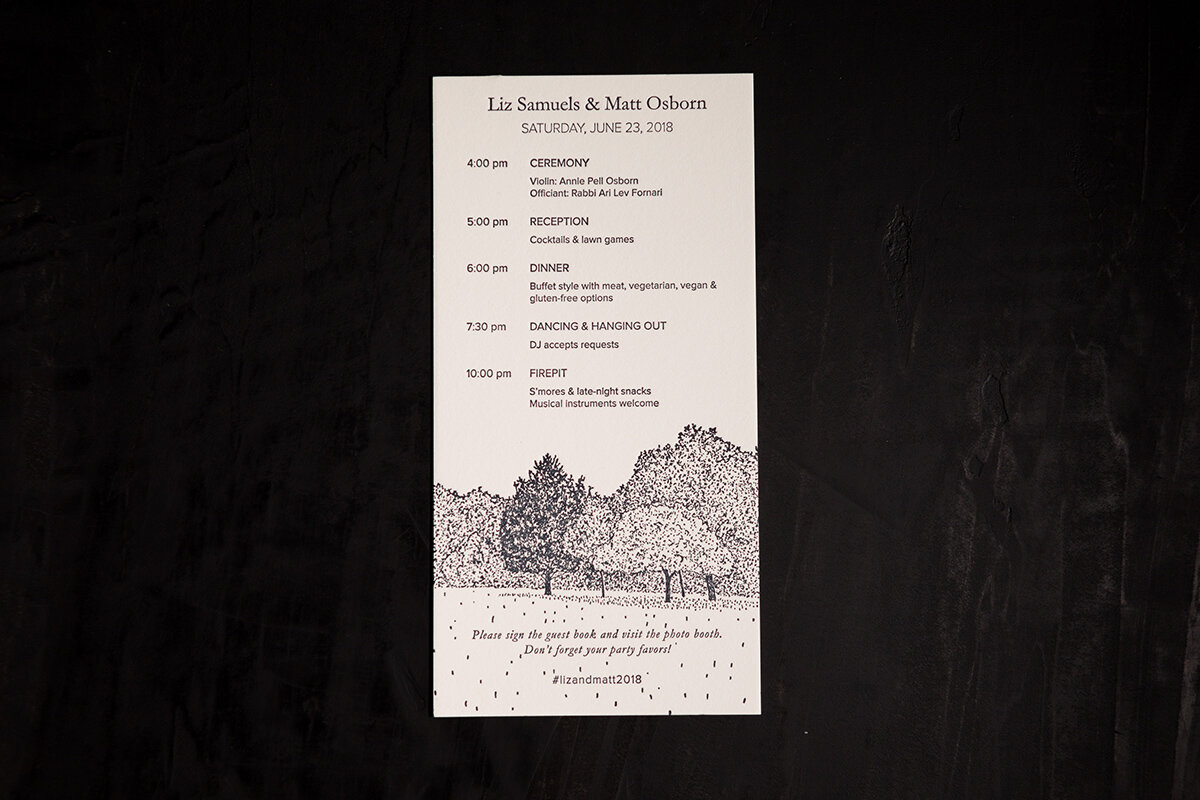 Liz Samuels & Matt Osborn
SATURDAY, JUNE 23, 2018
4:00 pm CEREMONY
Violin: Annie Pell Osborn
Officiant: Rabbi Ari Lev Fornari
5:00 pm RECEPTION
Cocktails & lawn games
6:00 pm DINNER
Buffet style with meat, vegetarian, vegan &
gluten-free options
7:30 pm DANCING & HANGING OUT
DJ accepts requests
10:00 pm FIREPIT
S'mores & late-night snacks
Musical instruments welcome
Please sign the guest book and visit the photo booth.
Don't forget your party favors!
#lizandmatt2018